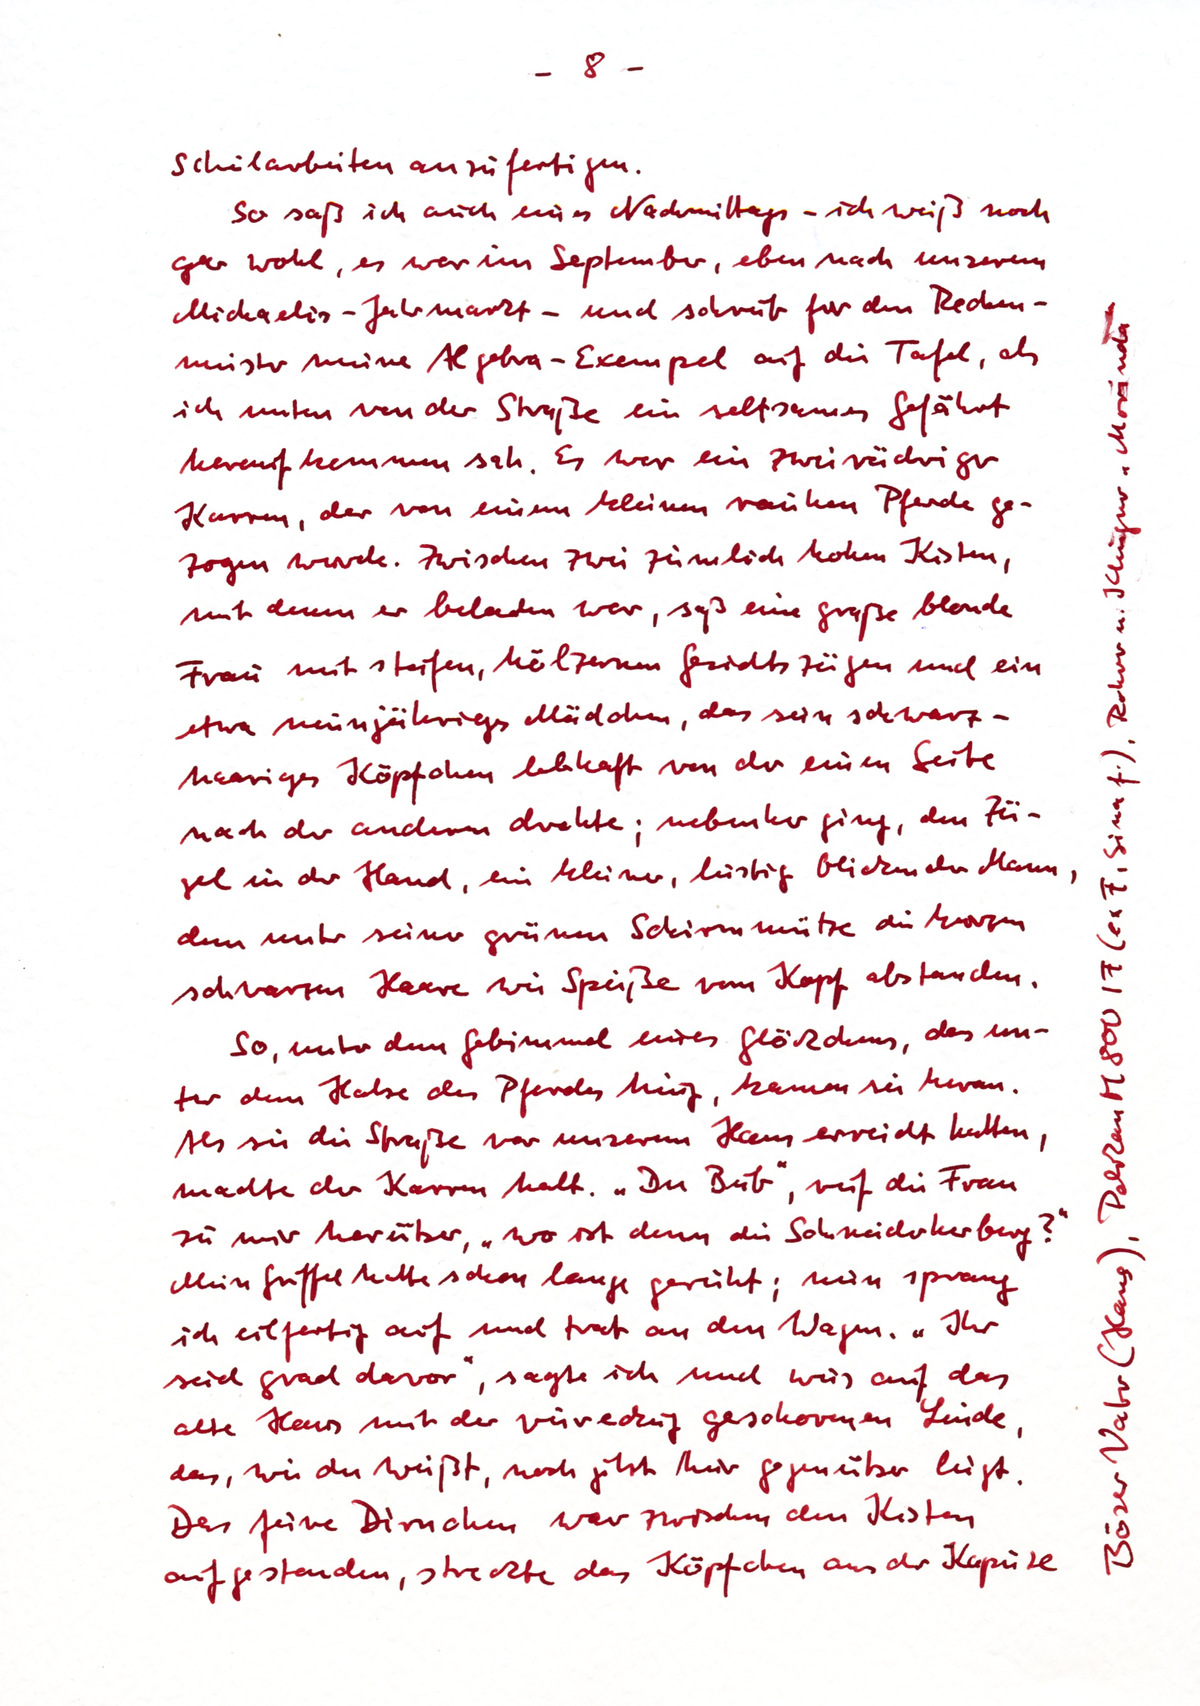 - 8 -
Schularbeiten anzufertigen.
So saß ich auch eines Nachmittags – ich weiß noch
gar wohl, es war im September, eben nach unserem
Michaelis-Jahrmarkt – und schrieb für den Rechen-
meister meine Algebra-Exempel auf die Tafel, als
ich unten von der Straße ein seltsames Gefährt
heraufkommen sah. Es war ein zweirädriger
Karren, der von einem kleinen rauhen Pferde ge-
zogen wurde. Zwischen zwei ziemlich hohen Kisten,
mit denen er beladen war, saß eine große blonde
Frau mit steifen, hölzernen Gesichtszügen und ein
etwa neunjähriges Mädchen, das sein schwarz-
haariges Köpfchen lebhaft von der einen Seite
nach der anderen drehte; nebenher ging, den Zü-
gel in der Hand, ein kleiner, lustig blickender Mann,
dem unter seiner grünen Schirmmütze die kurzen
schwarzen Haare wie Spieße vom Kopf abstanden.
So, unter dem Gebimmel eines Glöckchens, das un-
ter dem Halse des Pferdes hing, kamen sie heran.
Als sie die Straße vor unserem Haus erreicht hatten,
machte der Karren halt. „Du Bub“, rief die Frau
zu mir herüber, „wo ist denn die Schneiderherberg?“
Mein Griffel hatte schon lange geruht; nun sprang
ich eilfertig auf und trat an den Wagen. „Ihr
seid grad davor“, sagte ich und wies auf das
alte Haus mit der viereckig geschorenen Linde,
das, wie du weißt, noch jetzt hier gegenüber liegt.
Das feine Dirnchen war zwischen den Kisten
aufgestanden, streckte das Köpfchen aus der Kapuze
Böser Vater (Hans), Pelikan M 800 IF (ex F, Sina f.), Rohrer u. Klingner „Morinda